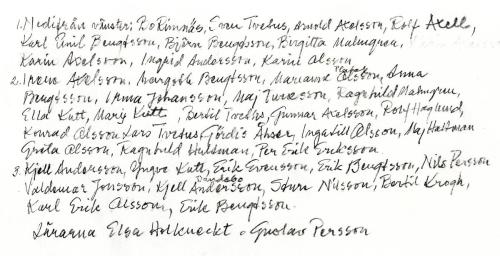 1. Nedifrån vänster: Bo Rimnäs, Sven Trehus, Arnold Axelsson, Rolf Axell,
Karl Emil Bengtsson, Björn Bengtsson, Birgitta Malmgren,
Karin Axelsson, Ingrid Andersson, Karin Olsson
2. Irene Axelsson, Margith Bengtsson, Marianne Olsson, Anna
Bengtsson, Irma Johansson, Maj Turesson, Ragnhild Malmgren,
Ella Kutt, Mary Kutt, Bertil Trehus, Gunnar Axelsson, Rolf Haglund
Konrad Olsson Lars Trehus, Gördis Åhser, Ingahill Olsson, Maj Hartman
Greta Olsson, Ragnhild Hartman, Per Erik Eriksson
3. Kjell Andersson, Yngve Kutt, Erik Svensson, Erik Bengtsson, Nils Persson
Valdemar Jonsson, Kjell Andersson, Sture Nilsson, Bertil Krogh,
Karl Erik Olsson, Erik Bengtsson.
Lärarna Elsa Holkneckt o Gustav Persson